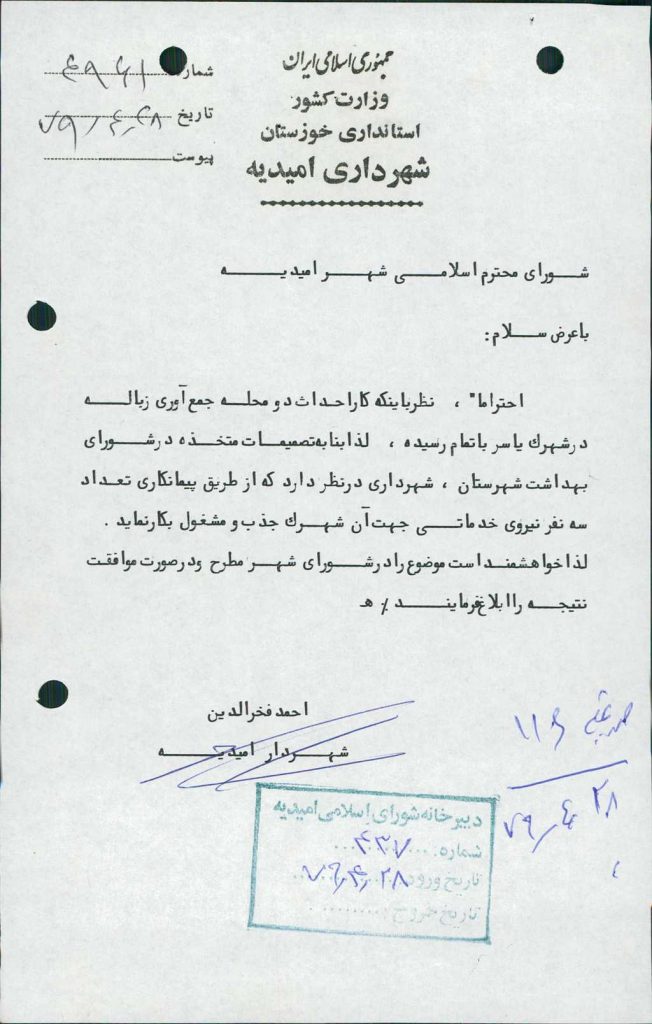 جمهوری اسلامی ایران
وزارت کشور
استانداری خوزستان
شهرداری امیدیه
شماره ۴۹۶۱
تاریخ ۷۹/۴/۲۸
پیوست
شورای محترم اسلامی شهر امیدیه
باعرض سلام:
احتراما" ، نظرباینکه کاراحداث دو محله جمع آوری زباله
در شهرک یاسر باتمام رسیده ، لذا بنا به تصمیمات متخذه در شورای
بهداشت شهرستان ، شهرداری در نظر دارد که از طریق پیمانکاری تعداد
سه نفر نیروی خدماتی جهت آن شهرک جذب و مشغول بکارنماید .
لذا خواهشمند است موضوع را در شورای شهر مطرح ودر صورت موافقت
نتیجه را ابلاغ فرمایند ./ ه
احمد فخرالدین
شهردار امیدیه
۲۸
۷۹/۴
دبیرخانه شورای اسلامی امیدیه
شماره: ۴۳۷
تاریخ ورود ۷۹/۴/۲۸
تاریخ خروج :